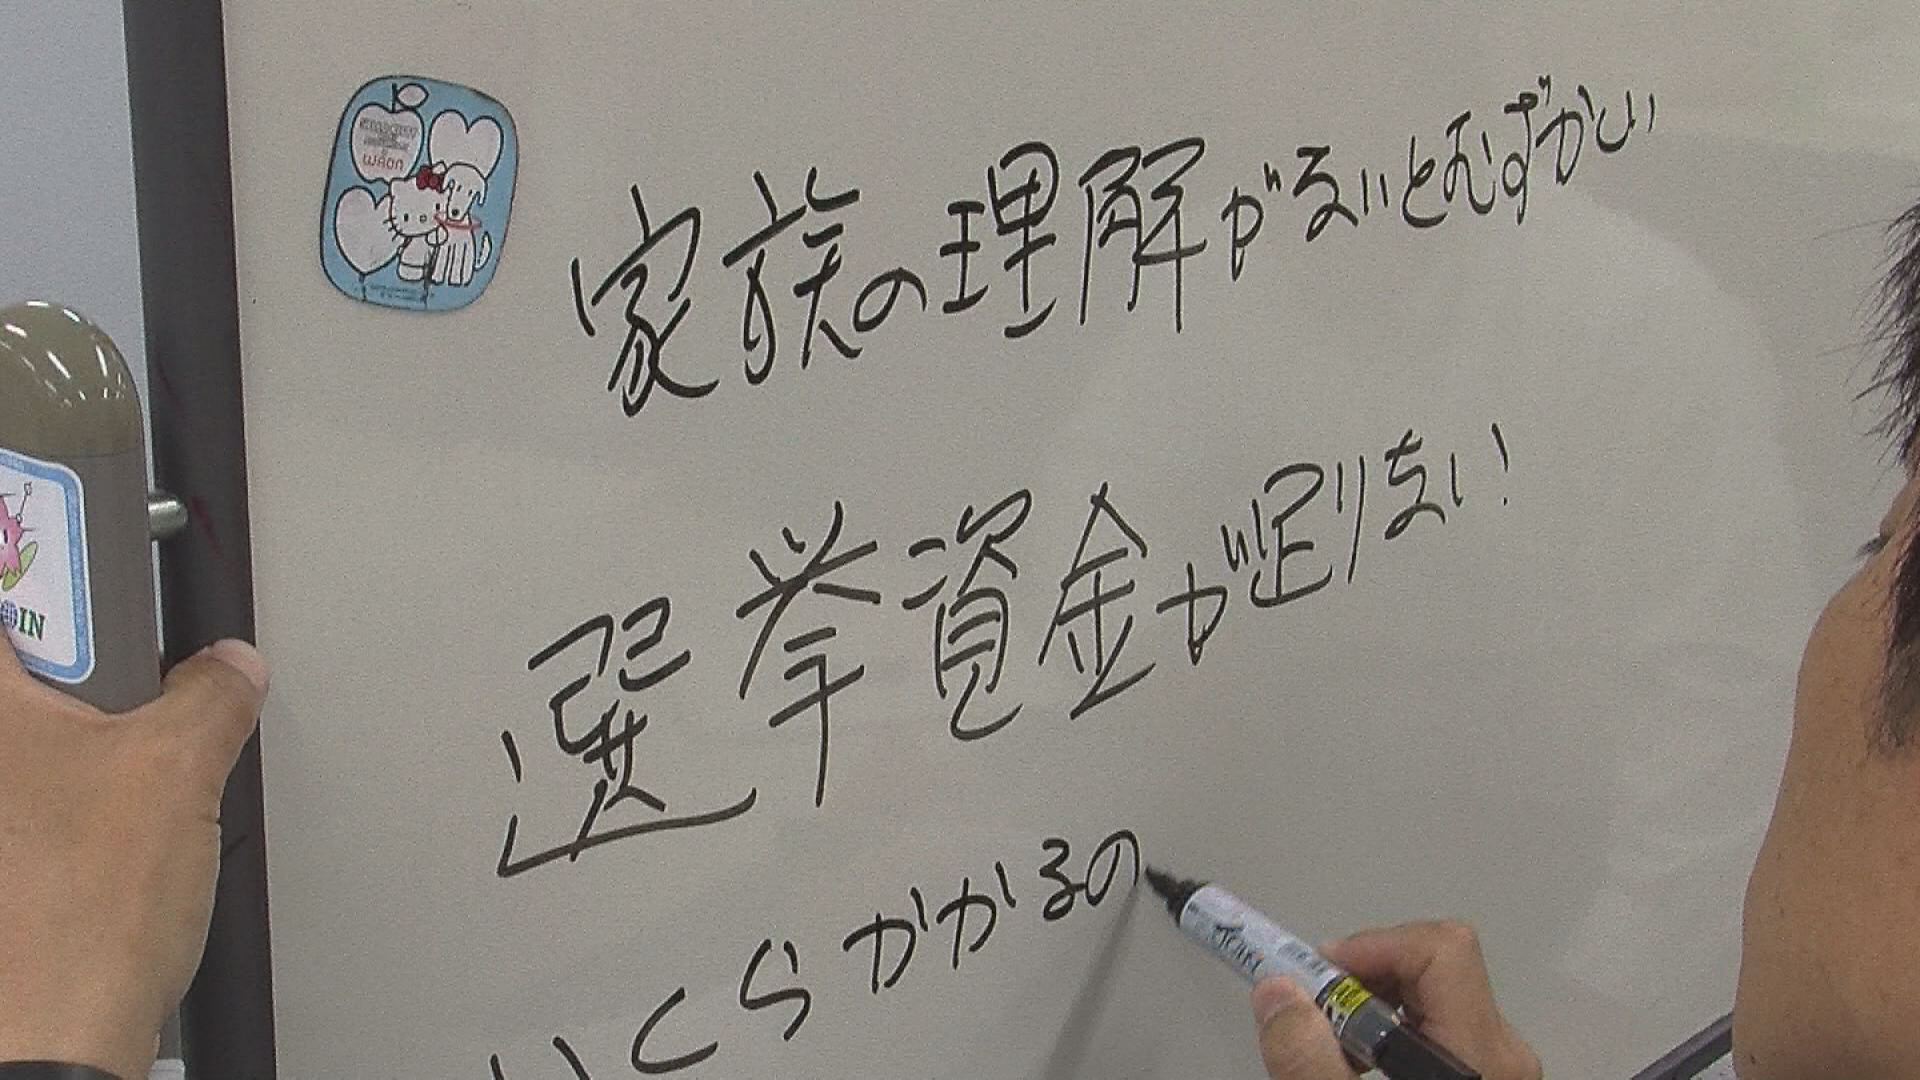 家族の理解がないとむずかしい
選挙資金が足りない!
いくらかかるの
WAON
JOIN
IN